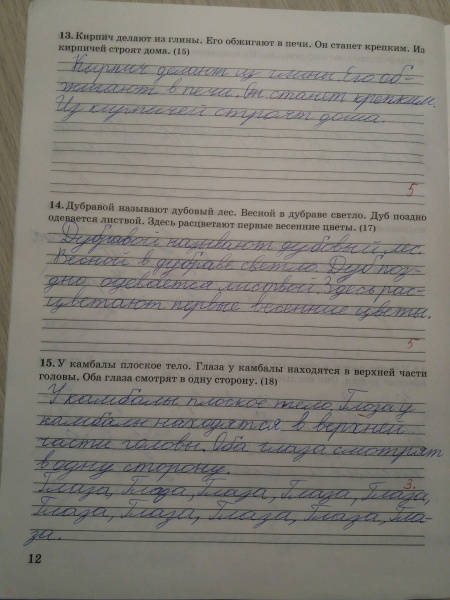 13. Кирпич делают из глины. Его обжигают в печи. Он станет крепким. Из
кирпичей строят дома. (15)
Кирпич делают из глины. Его об-
жигают в печи. Он станет крепким.
Из кирпичей строят дома.
5
14. Дубравой называют дубовый лес. Весной в дубраве светло. Дуб поздно
одевается листвой. Здесь расцветают первые весенние цветы. (17)
Дубравой называют дубовый лес.
Весной в дубраве светло. Дуб поз-
дно одевается листвой. Здесь рас-
цветают первые весенние цветы.
5
15. У камбалы плоское тело. Глаза у камбалы находятся в верхней части
головы. Оба глаза смотрят в одну сторону. (18)
У камбалы плоское тело. Глоза у
камбалы находятся в верхней
части головы. Оба глаза смотрят
в одну сторону.
3.
Глаза, Глаза, Глаза, Глаза, Глаза,
Глаза, Глаза, Глаза, Глаза, Гла-
за.
12